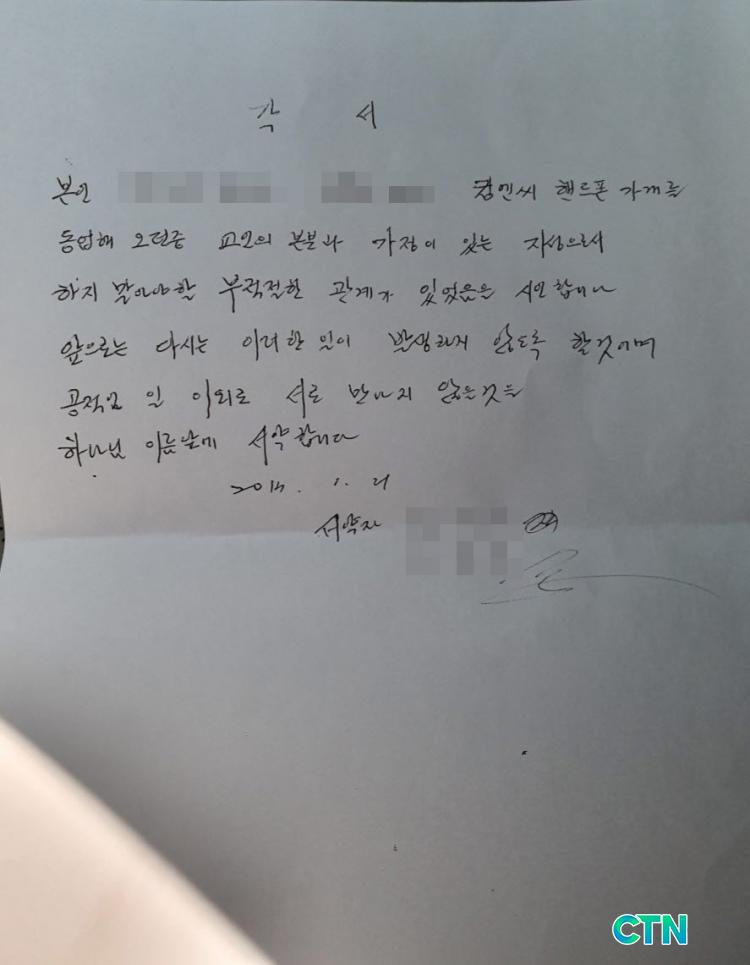 각 서
본인 컴엔씨 핸드폰 가게를
동업해 오던중 교인의 본분과 가정이 있는 자상으로서
하지 말아야할 부적절한 관계가 있었음을 시인합니다
앞으로는 다시는 이러한 일이 발생하지 않도록 할것이며
공적인 일 이외로 서로 만나지 않을것을
하나님 이름앞에 서약합니다
2015. 1. 21
서약자
CTN